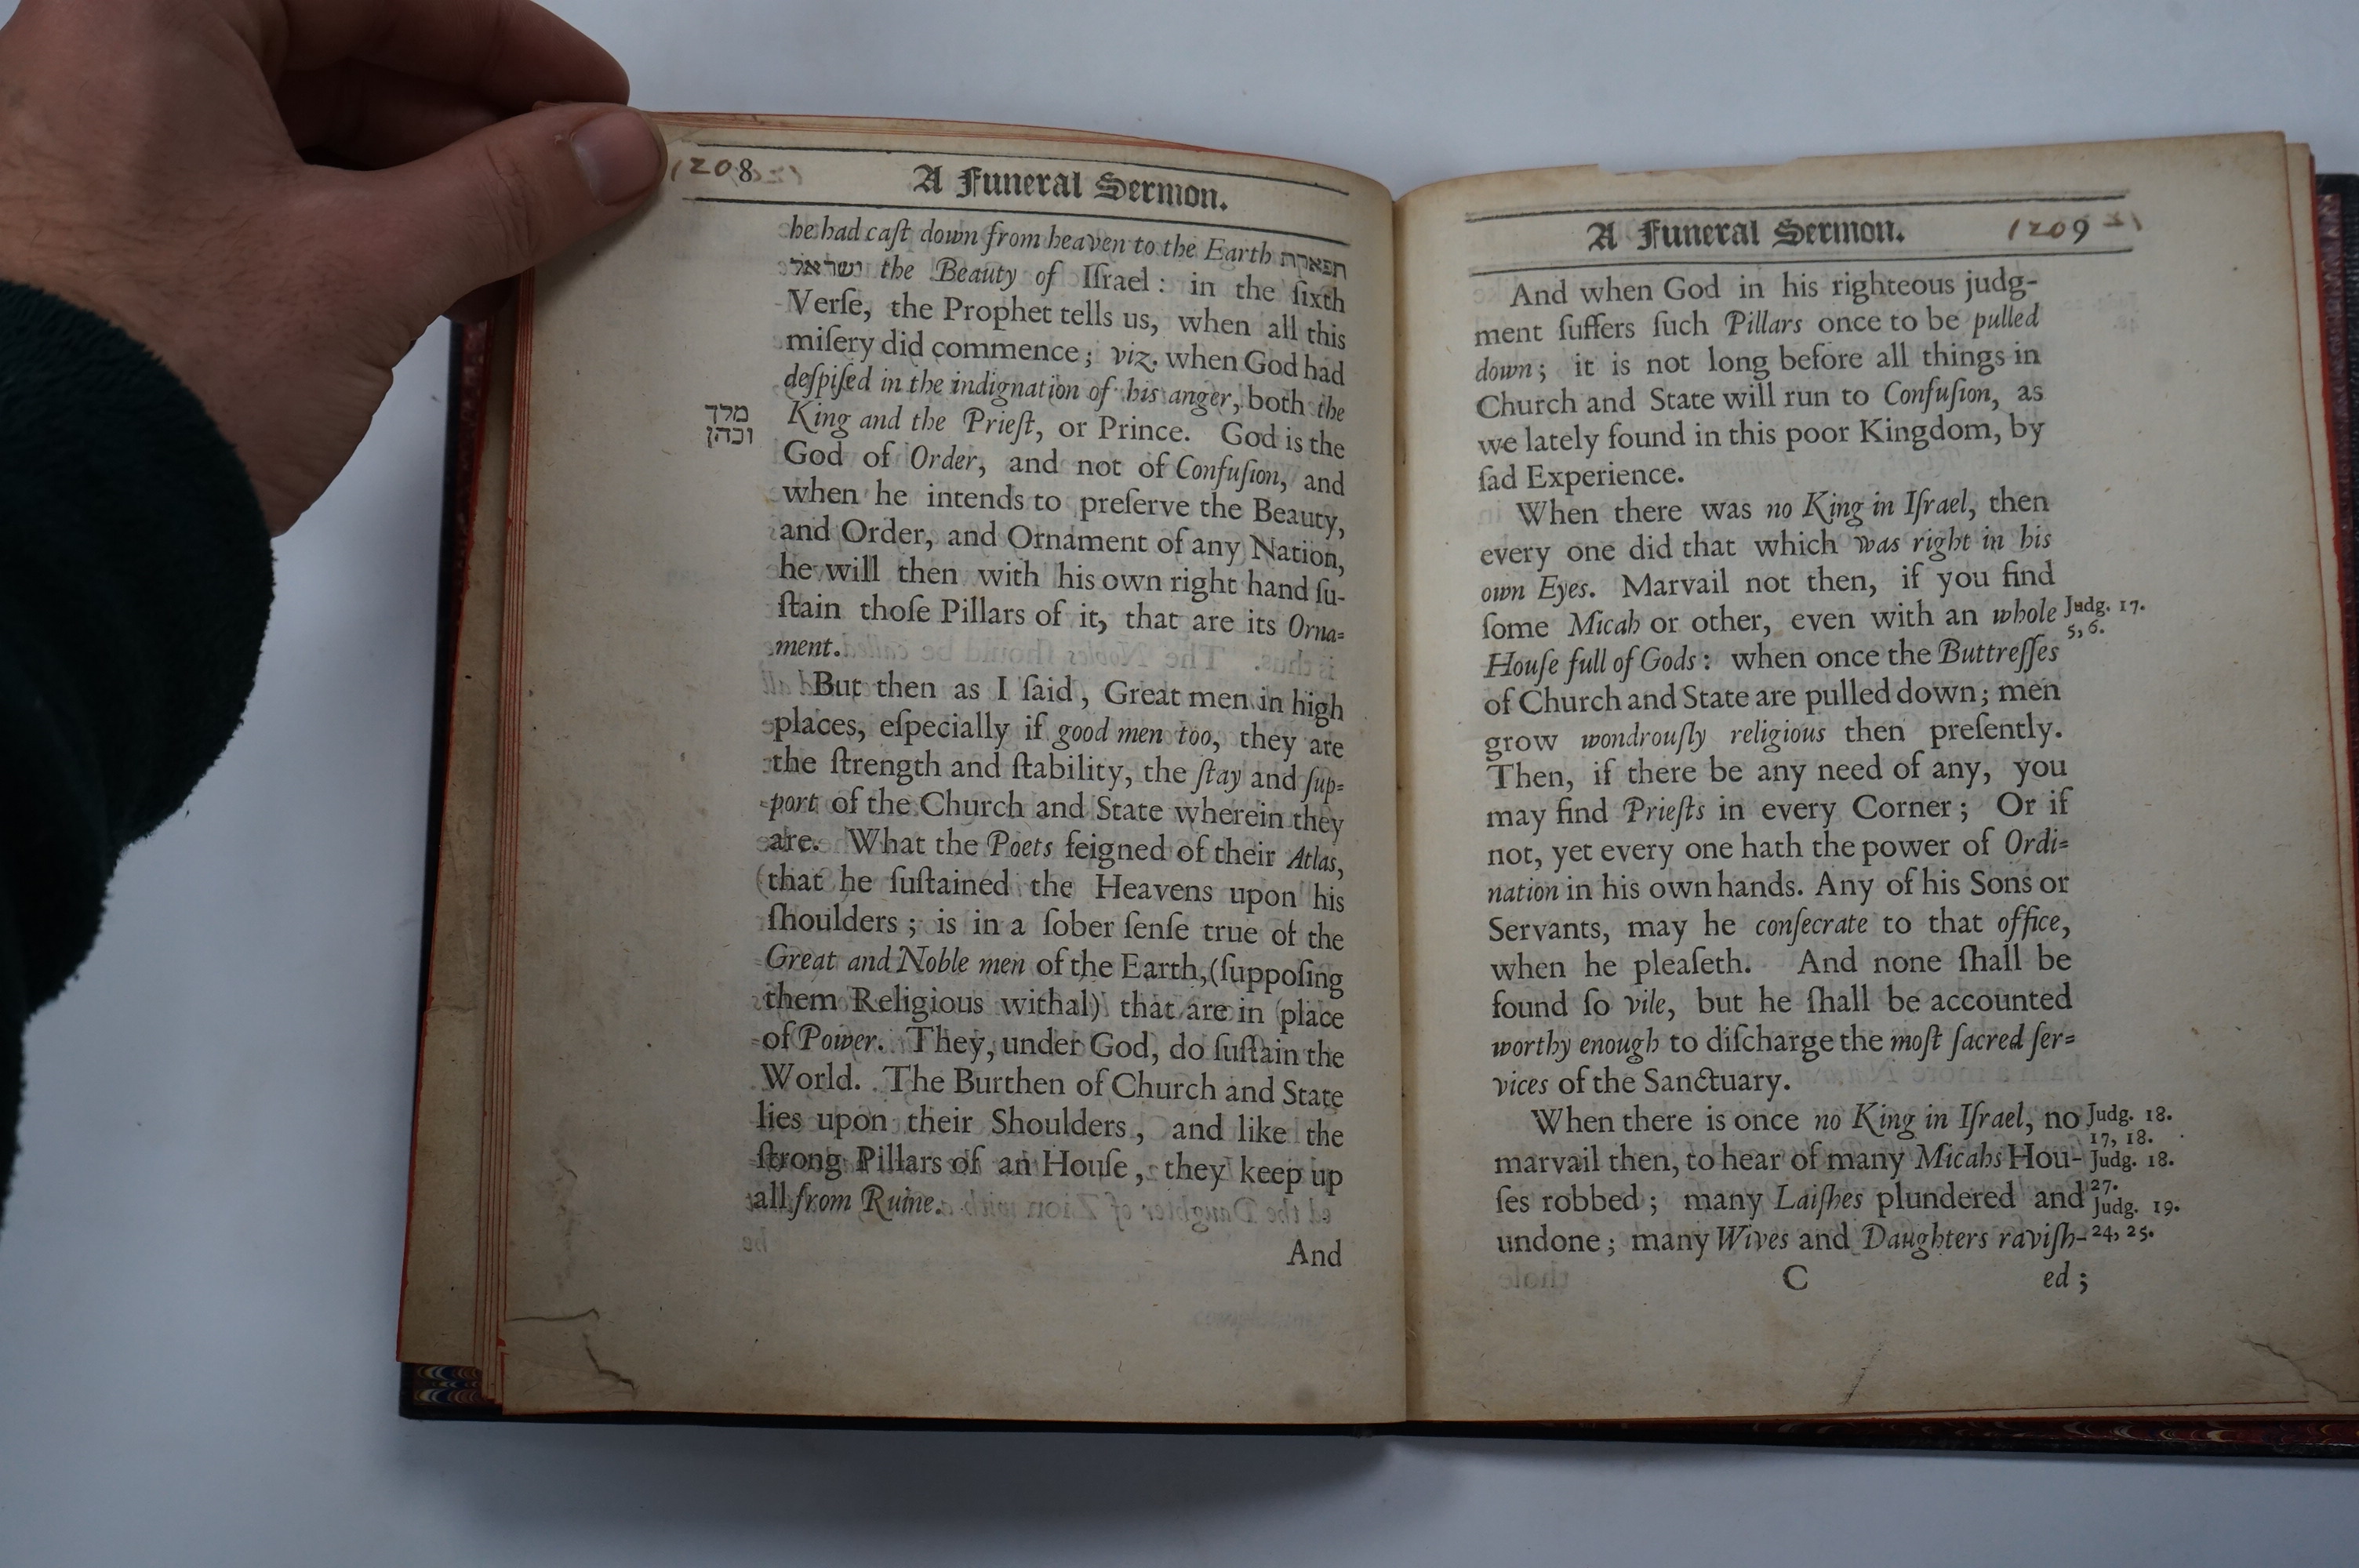 1208
A Funeral Sermon.
he had caſt down from heaven to the Earth תפארת
ישראל the Beauty of Iſrael : in the ſixth
Verſe, the Prophet tells us, when all this
miſery did commence ; viz. when God had
deſpiſed in the indignation of his anger, both the
King and the Prieſt, or Prince. God is the
מלך
וכהן
God of Order, and not of Confuſion, and
when he intends to preſerve the Beauty,
and Order, and Ornament of any Nation,
he will then with his own right hand ſu-
ſtain thoſe Pillars of it, that are its Orna-
ment.
But then as I ſaid, Great men in high
places, eſpecially if good men too, they are
the ſtrength and ſtability, the ſtay and ſup-
port of the Church and State wherein they
are. What the Poets feigned of their Atlas,
(that he ſuſtained the Heavens upon his
ſhoulders ; is in a ſober ſenſe true of the
Great and Noble men of the Earth, (ſuppoſing
them Religious withal) that are in place
of Power. They, under God, do ſuſtain the
World. The Burthen of Church and State
lies upon their Shoulders, and like the
ſtrong Pillars of an Houſe, they keep up
all from Ruine.
And
A Funeral Sermon.
1209
And when God in his righteous judg-
ment ſuffers ſuch Pillars once to be pulled
down ; it is not long before all things in
Church and State will run to Confuſion, as
we lately found in this poor Kingdom, by
ſad Experience.
When there was no King in Iſrael, then
every one did that which was right in his
own Eyes. Marvail not then, if you find
ſome Micah or other, even with an whole
Judg. 17.
5, 6.
Houſe full of Gods : when once the Buttreſſes
of Church and State are pulled down ; men
grow wondrouſly religious then preſently.
Then, if there be any need of any, you
may find Prieſts in every Corner ; Or if
not, yet every one hath the power of Ordi-
nation in his own hands. Any of his Sons or
Servants, may he conſecrate to that office,
when he pleaſeth. And none ſhall be
found ſo vile, but he ſhall be accounted
worthy enough to diſcharge the moſt ſacred ſer-
vices of the Sanctuary.
When there is once no King in Iſrael, no
Judg. 18.
17, 18.
marvail then, to hear of many Micahs Hou-
Judg. 18.
27.
ſes robbed ; many Laiſhes plundered and
Judg. 19.
24, 25.
undone ; many Wives and Daughters raviſh-
C
ed ;